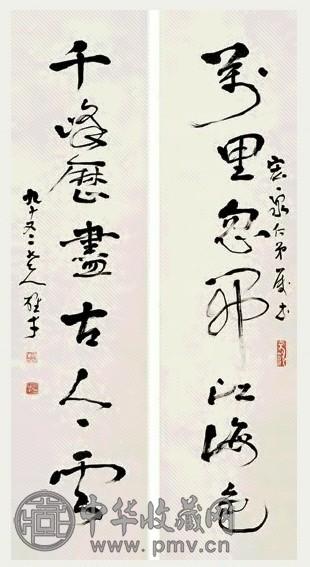 萬里忽開江海色
宏泉仁弟屬書
千峰歷盡古今雲
九十又二老人雄才
中华收藏网
www.pmv.cn